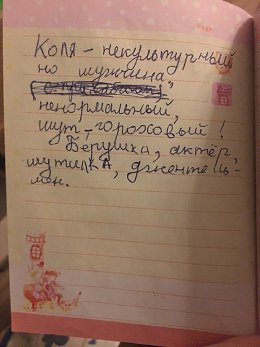 Коля – некультурный
но мужчина"
ненормальный,
шут-гороховый!
Берушка, актёр,
шутилка, джентельмен.